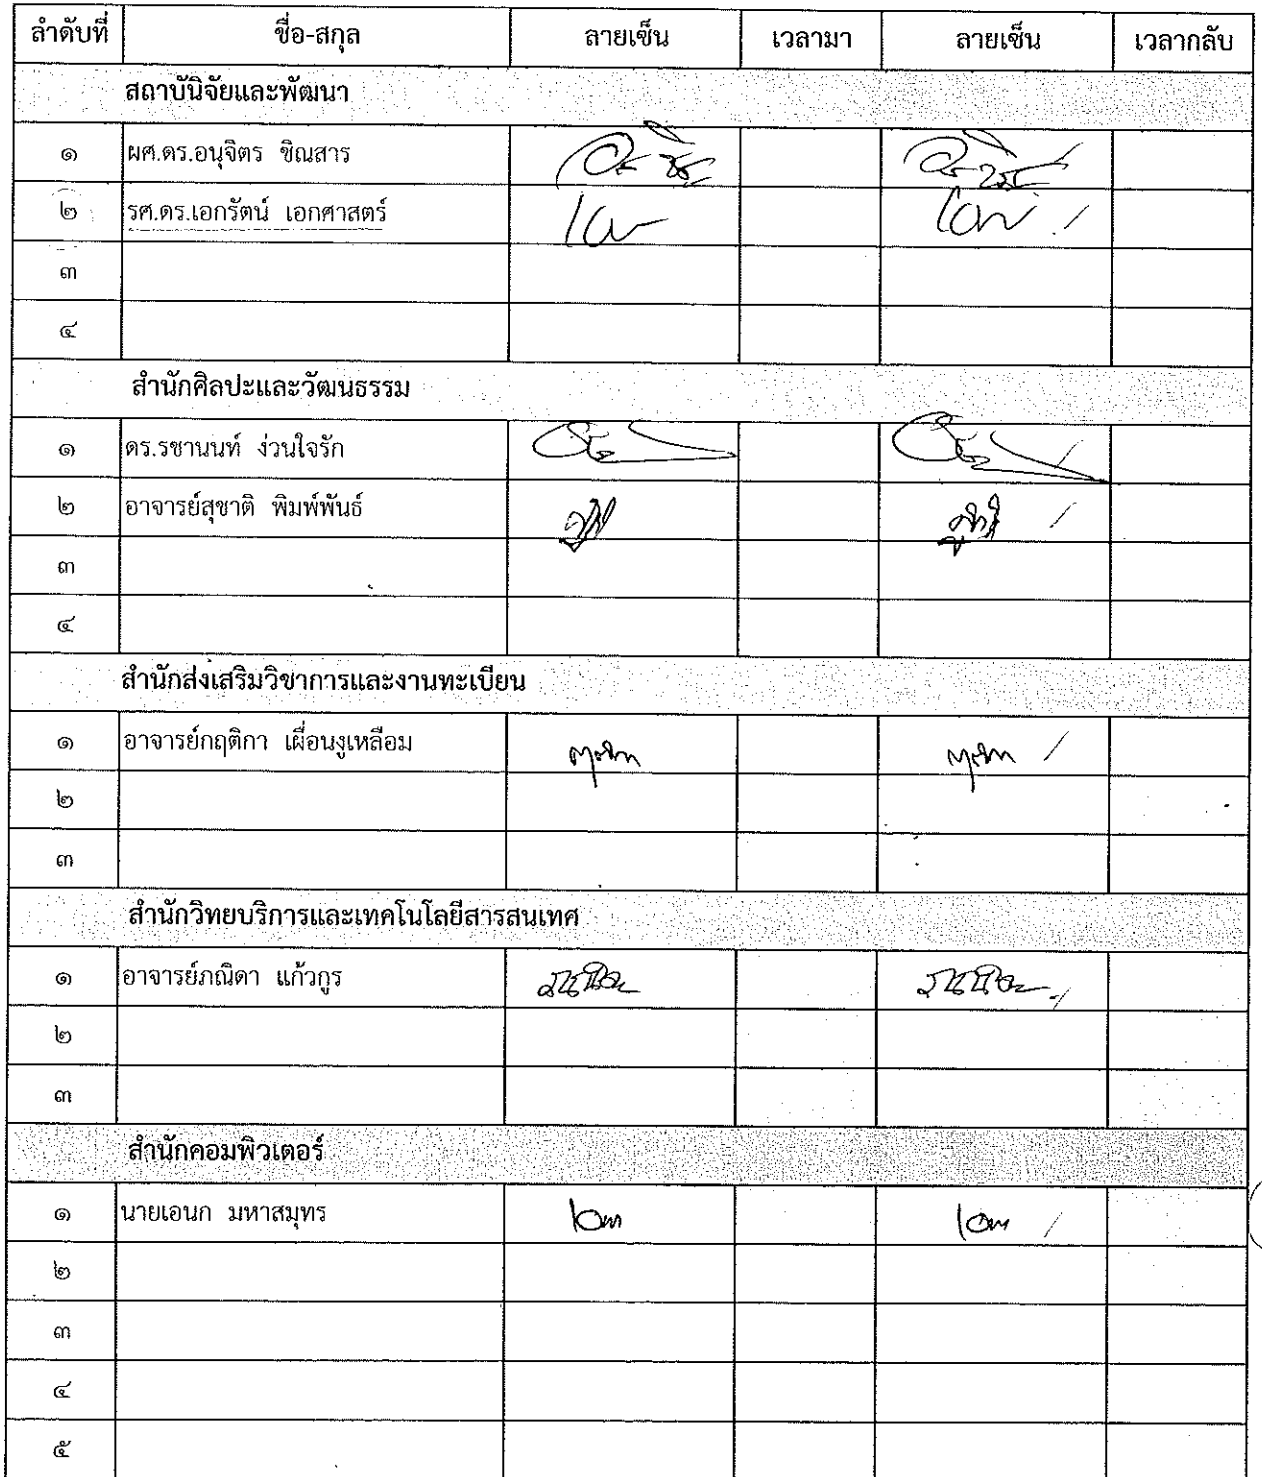 ลำดับที่ ชื่อ-สกุล ลายเซ็น เวลามา ลายเซ็น เวลากลับ
สถาบันิจัยและพัฒนา
๑ ผศ.ดร.อนุจิตร ชิณสาร
๒ รศ.ดร.เอกรัตน์ เอกศาสตร์
๓
๔
สำนักศิลปะและวัฒนธรรม
๑ ดร.รชานนท์ ง่วนใจรัก
๒ อาจารย์สุชาติ พิมพ์พันธ์
๓
๔
สำนักส่งเสริมวิชาการและงานทะเบียน
๑ อาจารย์กฤติกา เผื่อนงูเหลือม
๒
๓
สำนักวิทยบริการและเทคโนโลยีสารสนเทศ
๑ อาจารย์ภณิดา แก้วกูร
๒
๓
สำนักคอมพิวเตอร์
๑ นายเอนก มหาสมุทร
๒
๓
๔
๕